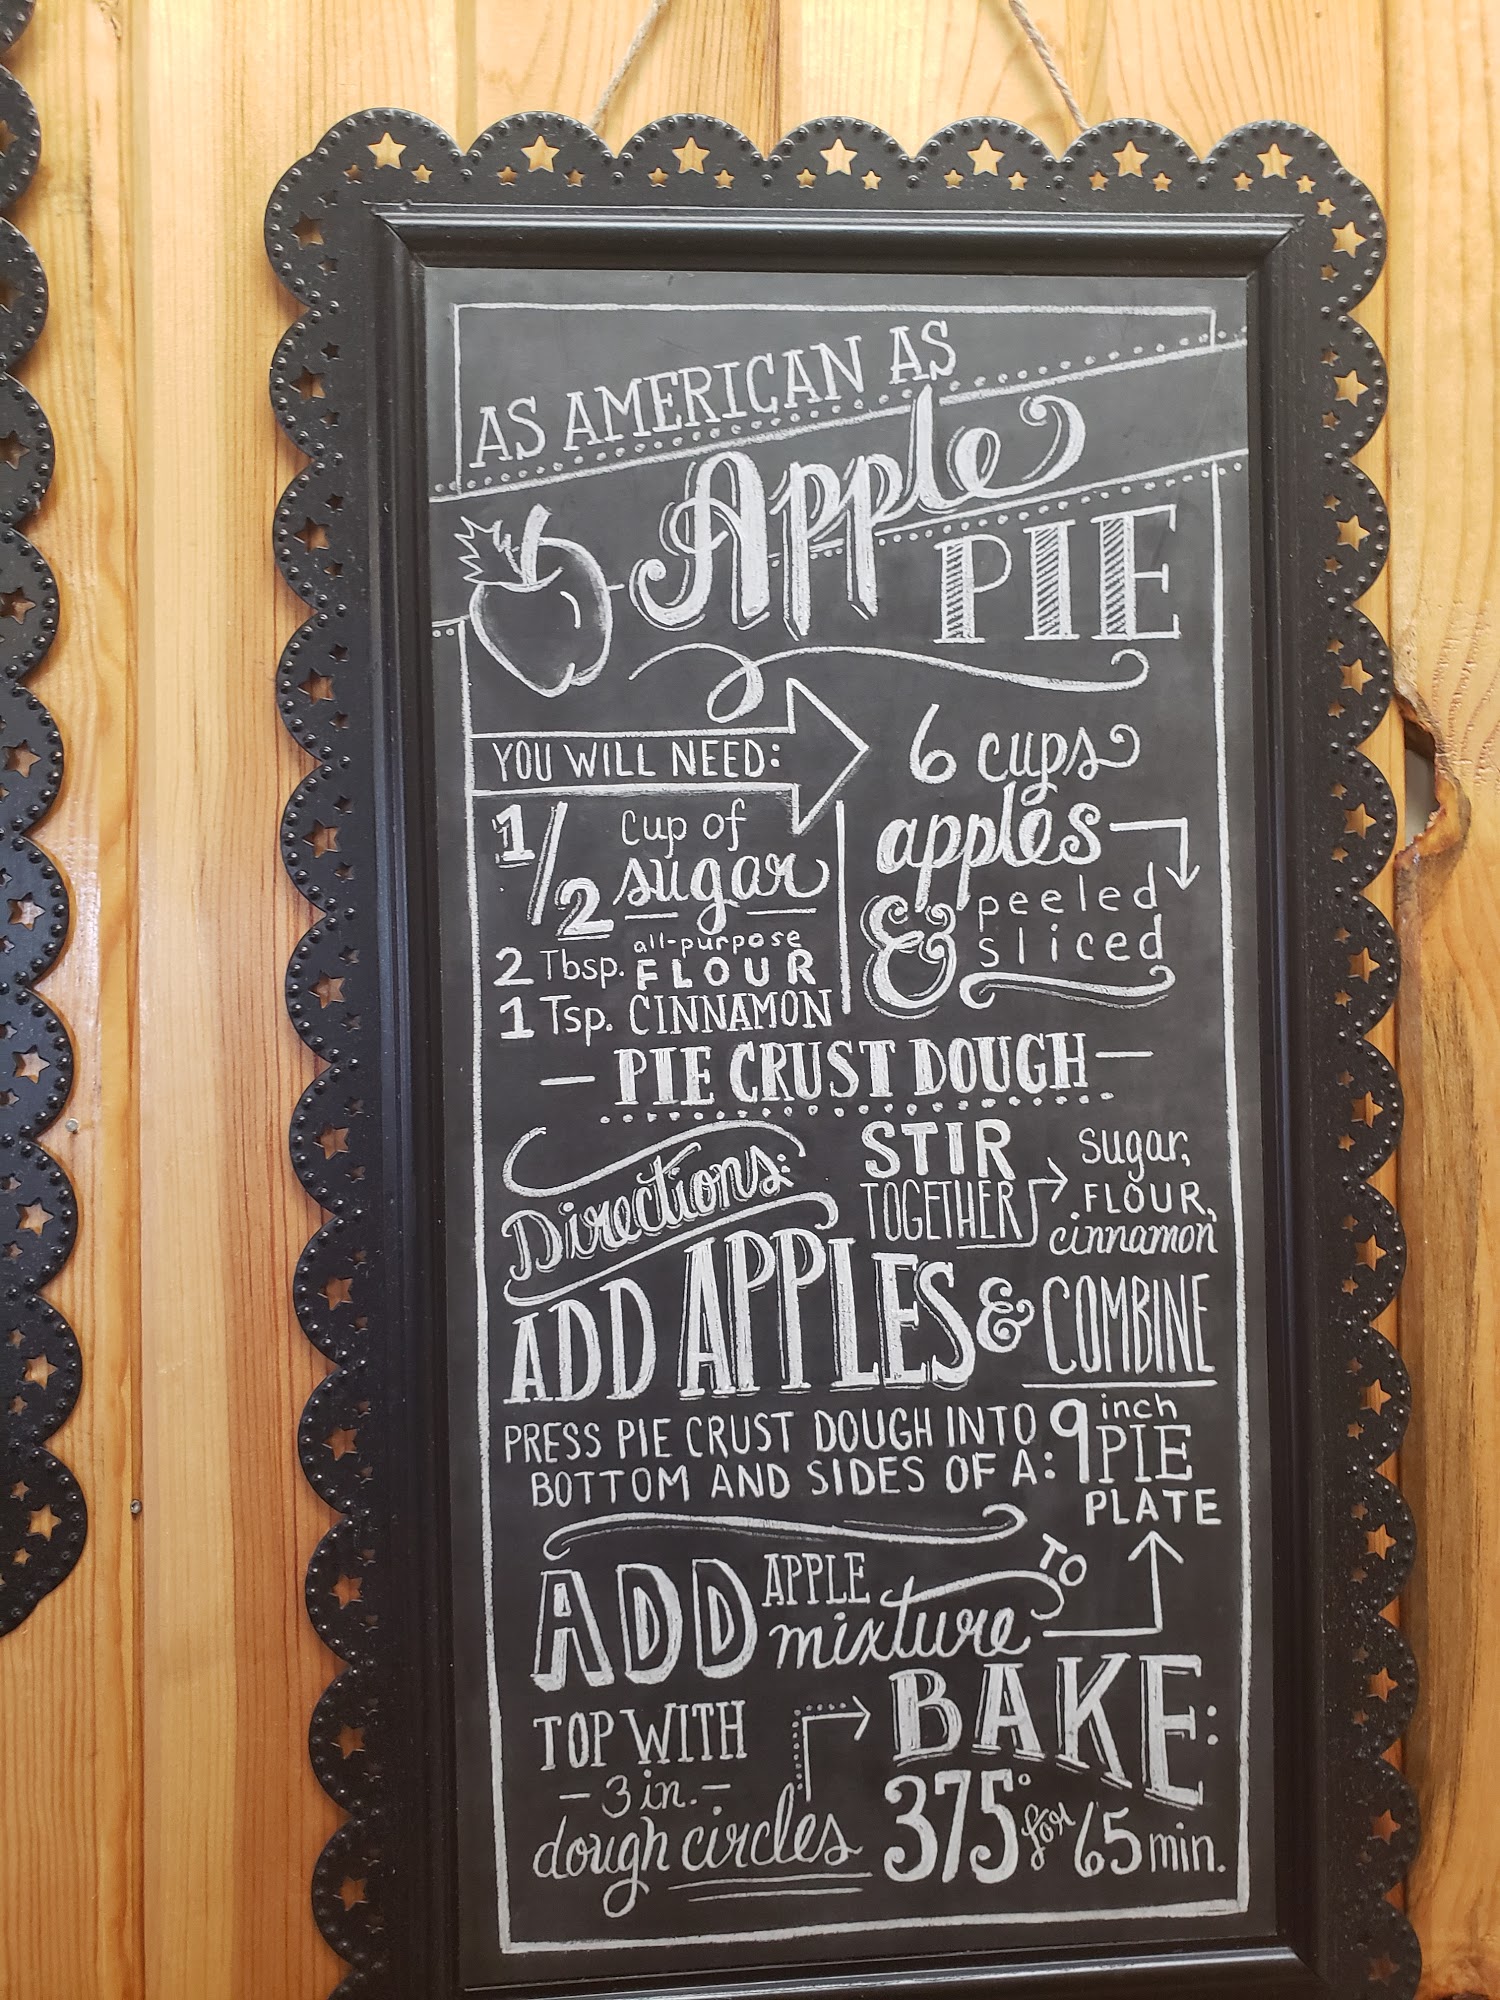 AS AMERICAN AS
Apple
PIE
YOU WILL NEED:
1/2 cup of
sugar
2 Tbsp. all-purpose
FLOUR
1 Tsp. CINNAMON
6 cups
apples
& peeled
sliced
PIE CRUST DOUGH
Directions:
STIR
TOGETHER
sugar,
FLOUR,
cinnamon
ADD APPLES & COMBINE
PRESS PIE CRUST DOUGH INTO
BOTTOM AND SIDES OF A:
9 inch
PIE
PLATE
ADD APPLE
mixture
TO
TOP WITH
- 3 in. -
dough circles
BAKE:
375° for 65 min.